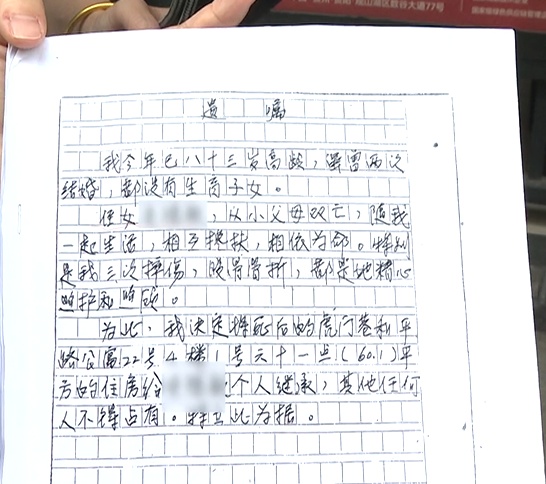 观山湖区数谷大道77号
遗嘱
我今年已八十三岁高龄，虽曾两次
结婚，都没有生育子女。
侄女，从小父母双亡，随我
一起生活，相互搀扶，相依为命。特别
是我三次摔伤，股骨骨折，都是她精心
照护和照顾。
为此，我决定将死后的虎门巷和平
路公寓22号4楼1号六十一点(60.1)平
方的住房给个人继承，其他任何
人不得占有。特立此为据。